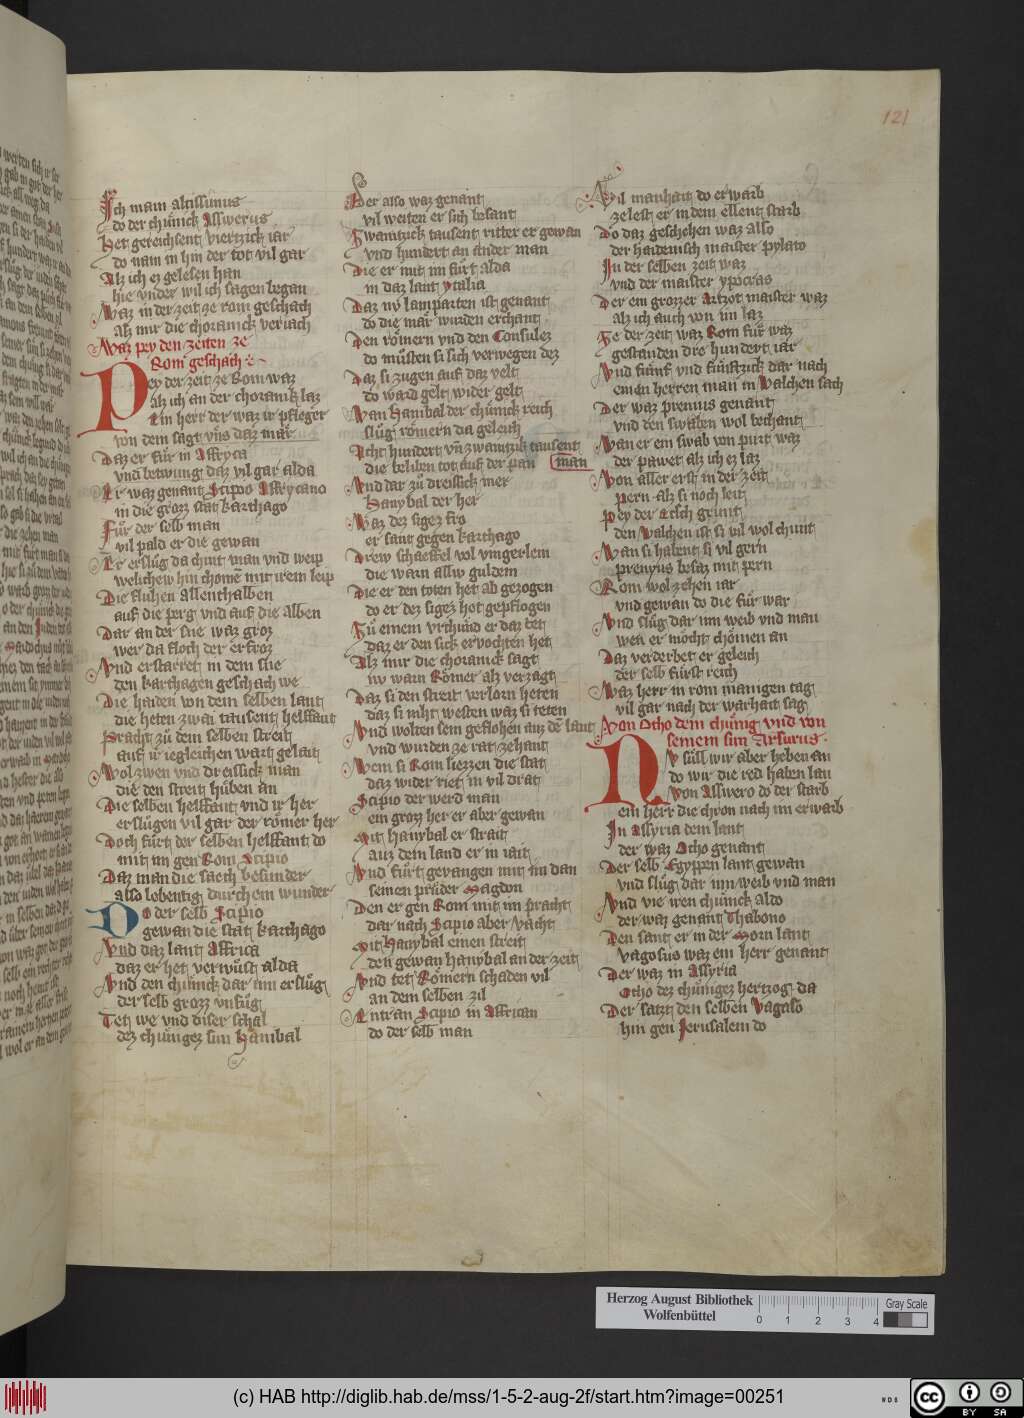 121
Ich main altissimus
do der chůnick Asswerus
Het gereichsent viertzick iar
do nam in hin der tot vil gar
Alz ich ez gelesen han
hie vnder wil ich sagen began
Waz in der zeit ze rom geschach
alz mir die choranick veriach
Waz pey den zeiten ze
Rom geschach
Pey der zeit ze Rom waz
alz ich an der choranik laz
Ein herr der waz ir pfleger
von dem sagt vns daz mär
Daz er für in Affryca
vnd betwung daz vil gar alda
Er waz genant Scipio Affrycano
in die grozz stat karthago
Für der selb man
vil pald er die gewan
Er erslůg da chint man vnd weip
welichew hin chome mit irem leip
Die fluhen allenthalben
auf die perg vnd auf die alben
Dar an der sne waz groz
wer da floch der erfroz
Vnd erstarret in dem sne
den karthagen geschach we
Die haiden von dem selben lant
die heten zwai tausent helffant
Pracht zů dem selben streit
auf ir iegleichen wart gelait
Wol zwen vnd dreissick man
die den streit hůben an
Die selben helffant vnd ir her
erslůgen vil gar der römer her
Doch fůrt der selben helffant do
mit im gen Rom Scipio
Daz man die sach besunder
also lobentig durch ein wunder
Do der selb Scipio
gewan die stat karthago
Vnd daz lant Affrica
daz er het verwůst alda
Vnd den chůnick dar inn erslůg
der selb grozz vnfůg
Tet we vnd diser schal
dez chůnigez sun Hanibal
Der also waz genant
vil weiten er sich besant
Zwaintzick tausent ritter er gewan
vnd hundert an ander man
Die er mit im fůrt alda
in daz lant ytalia
Daz nv lamparten ist genant
do die mär wurden erchant
Den römern vnd den Consulez
do můsten si sich verwegen dez
Daz si zugen auf daz velt
do ward gelt wider gelt
Wan Hanibal der chůnick reich
slůg römern da geleich
Acht hundert vnd zwaintzik tausent
die beliben tot auf der pan man
Vnd dar zů dreissick mer
Hanybal der her
Waz dez sigez fro
er sant gegen karthago
Drew schaeffel vol vingerlein
die warn allew guldein
Die er den toten het ab gezogen
do er dez sigez hot gepflogen
Zů einem vrchund er daz tet
daz er den sick ervochten het
Alz mir die choranick sagt
nv warn Römer alz verzagt
Daz si den streit verlorn heten
daz si niht westen waz si teten
Vnd wolten sein geflohen auz de lant
vnd wurden ze rat zehant
Wem si Rom liezzen die stat
daz wider riet in vil drat
Scipio der werd man
ein grozz her er aber gewan
Mit Hanybal er strait
auz dem land er in iait
Vnd fůrt gevangen mit im dan
seinen průder Magdon
Den er gen Rom mit im pracht
dar nach Scipio aber vacht
Mit Hanybal einen streit
den gewan Hanybal an der zeit
Vnd tet Römern schaden vil
an dem selben zil
Entran Scipio in Affrican
do der selb man
Vil manhait do erwarb
zelest er in dem ellent starb
Do daz geschehen waz also
der haidenisch maister pylato
In der selben zeit waz
vnd der maister ypocras
Der ein grozzer Artzot maister waz
alz ich auch von im laz
Ze der zeit waz Rom fůr waz
gestanden dre hundert iar
Vnd fůnf vnd fůnftzick dar nach
einen herren man in Walchen sach
Der waz prenius genant
vnd den swaben wol bechant
Wan er ein swab von purt waz
der pawet alz ich ez laz
Von aller erst in der zeit
pern alz si noch leit
Pey der Etsch grunt
den Walchen ist si vil wol chunt
Wan si habent si vil gern
prenyus besaz mit pern
Rom wol zehen iar
vnd gewan do die fůr war
Vnd slůg dar inn weib vnd man
wen er mocht chömen an
Daz verderbet er geleich
der selb fůrst reich
Waz herr in rom manigen tag
vil gar nach der warhait sag
Von Otho dem chůnig vnd von
seinem sun Arsurus
Nv süll wir aber heben an
do wir die red haben lan
Von Asswero do der starb
ein herr die chron nach im erwarb
In Assyria dem lant
der waz Ocho genant
Der selb Egyppen lant gewan
vnd slůg dar inn weib vnd man
Vnd vie iren chůnick aldo
der waz genant Thabono
Den sant er in der Morn lant
Vagosus waz ein herr genant
Der waz in Assyria
Otho dez chůnigez hertzog da
Der satzt den selben Vagaso
hin gen Jerusalem do
Herzog August Bibliothek
Wolfenbüttel
0 1 2 3 4
Gray Scale
(c) HAB http://diglib.hab.de/mss/1-5-2-aug-2f/start.htm?image=00251
WDB
cc BY SA